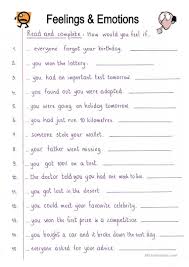 Feelings & Emotions
Read and complete: How would you feel if...
1 ... everyone forgot your birthday.
2 ... you won the lottery.
3 ... you had an important test tomorrow.
4 ... you found out you were adopted.
5 ... you were going on holiday tomorrow.
6 ... you had just run 10 kilometres.
7 ... someone stole your wallet.
8 ... your father went missing.
9 ... you got 100% on a test.
10 ... to the
11 ... you got lost in the desert.
12 ... you could meet your favorite celebrity.
13 ... you won the first prize in a competition.
14 ... you bought a car and it broke down the next day.
15 ... everyone asked for your advice.